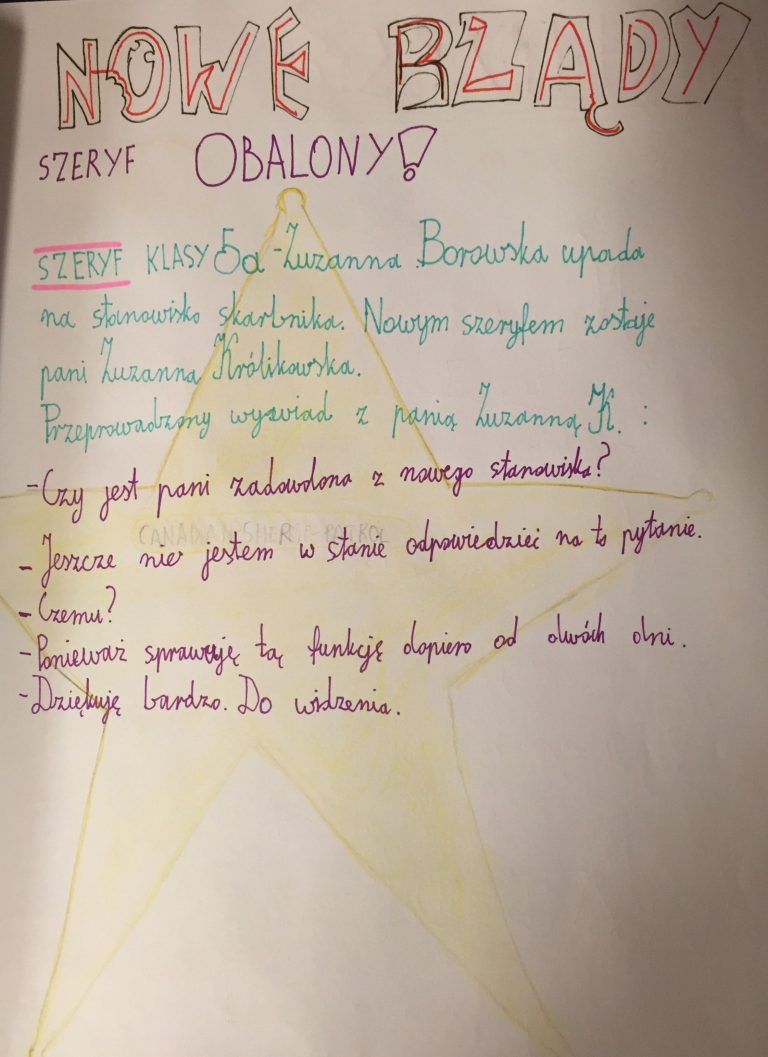 NOWE RZĄDY
SZERYF OBALONY!
SZERYF KLASY 5a - Zuzanna Borowska upada
na stanowisko skarbnika. Nowym szeryfem zostaje
pani Zuzanna Królikowska.
Przeprowadzony wywiad z panią Zuzanną K. :
- Czy jest pani zadowolona z nowego stanowiska?
CANADIAN PATROL
- Jeszcze nie jestem w stanie odpowiedzieć na to pytanie.
- Czemu?
- Ponieważ sprawuję tą funkcję dopiero od dwóch dni.
- Dziękuję bardzo. Do widzenia.